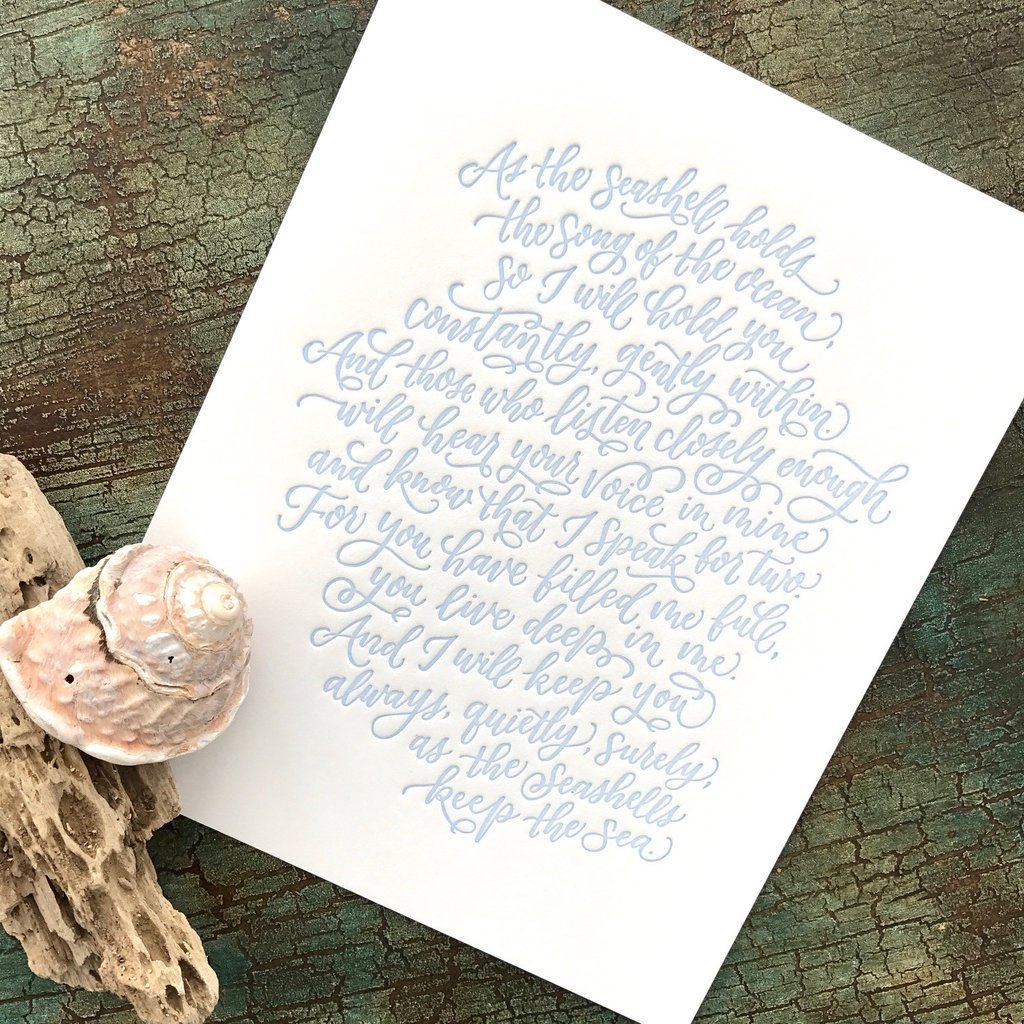 As the seashell holds
the song of the ocean,
so I will hold you
constantly, gently within.
And those who listen closely enough
will hear your voice in mine
and know that I speak for two.
For you have filled me full,
you live deep in me.
And I will keep you
always, quietly, surely,
as the seashells
keep the sea.